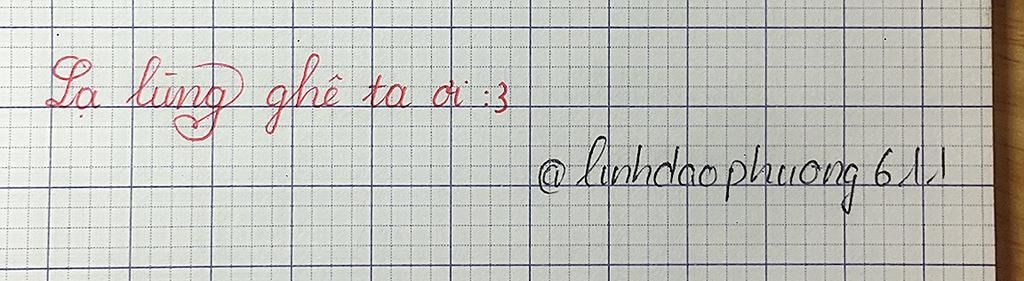 Lạ lùng ghê ta ơi :3
@linhdaophuong611